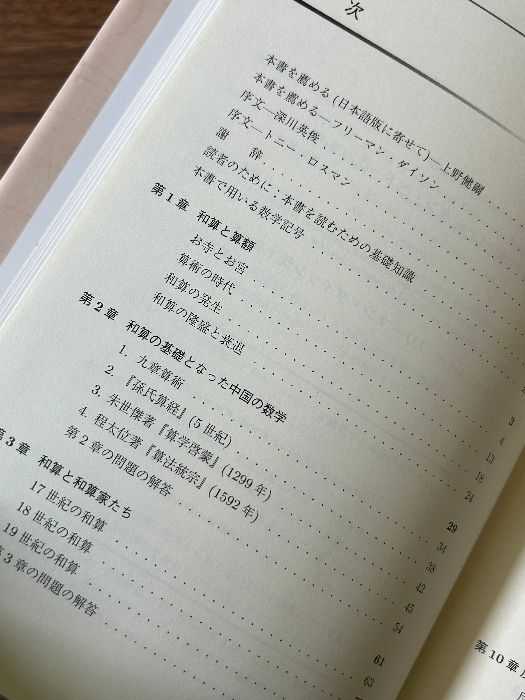 次
本書を薦める(日本語版に寄せて)—上野健爾
本書を薦める—フリーマン・ダイソン
序文—深川英俊
序文—トニー・ロスマン
謝 辞
読者のために:本書を読むための基礎知識
本書で用いる数学記号
第1章 和算と算額 3
お寺とお宮 4
算術の時代 13
和算の発生 18
和算の隆盛と衰退 24
第2章 和算の基礎となった中国の数学 29
1. 九章算術 34
2. 『孫氏算経』(5世紀) 38
3. 朱世傑著『算学啓蒙』(1299年) 42
4. 程太位著『算法統宗』(1592年) 45
第2章の問題の解答 54
第3章 和算と和算家たち 61
17世紀の和算 63
18世紀の和算
19世紀の和算
第3章の問題の解答
第10章